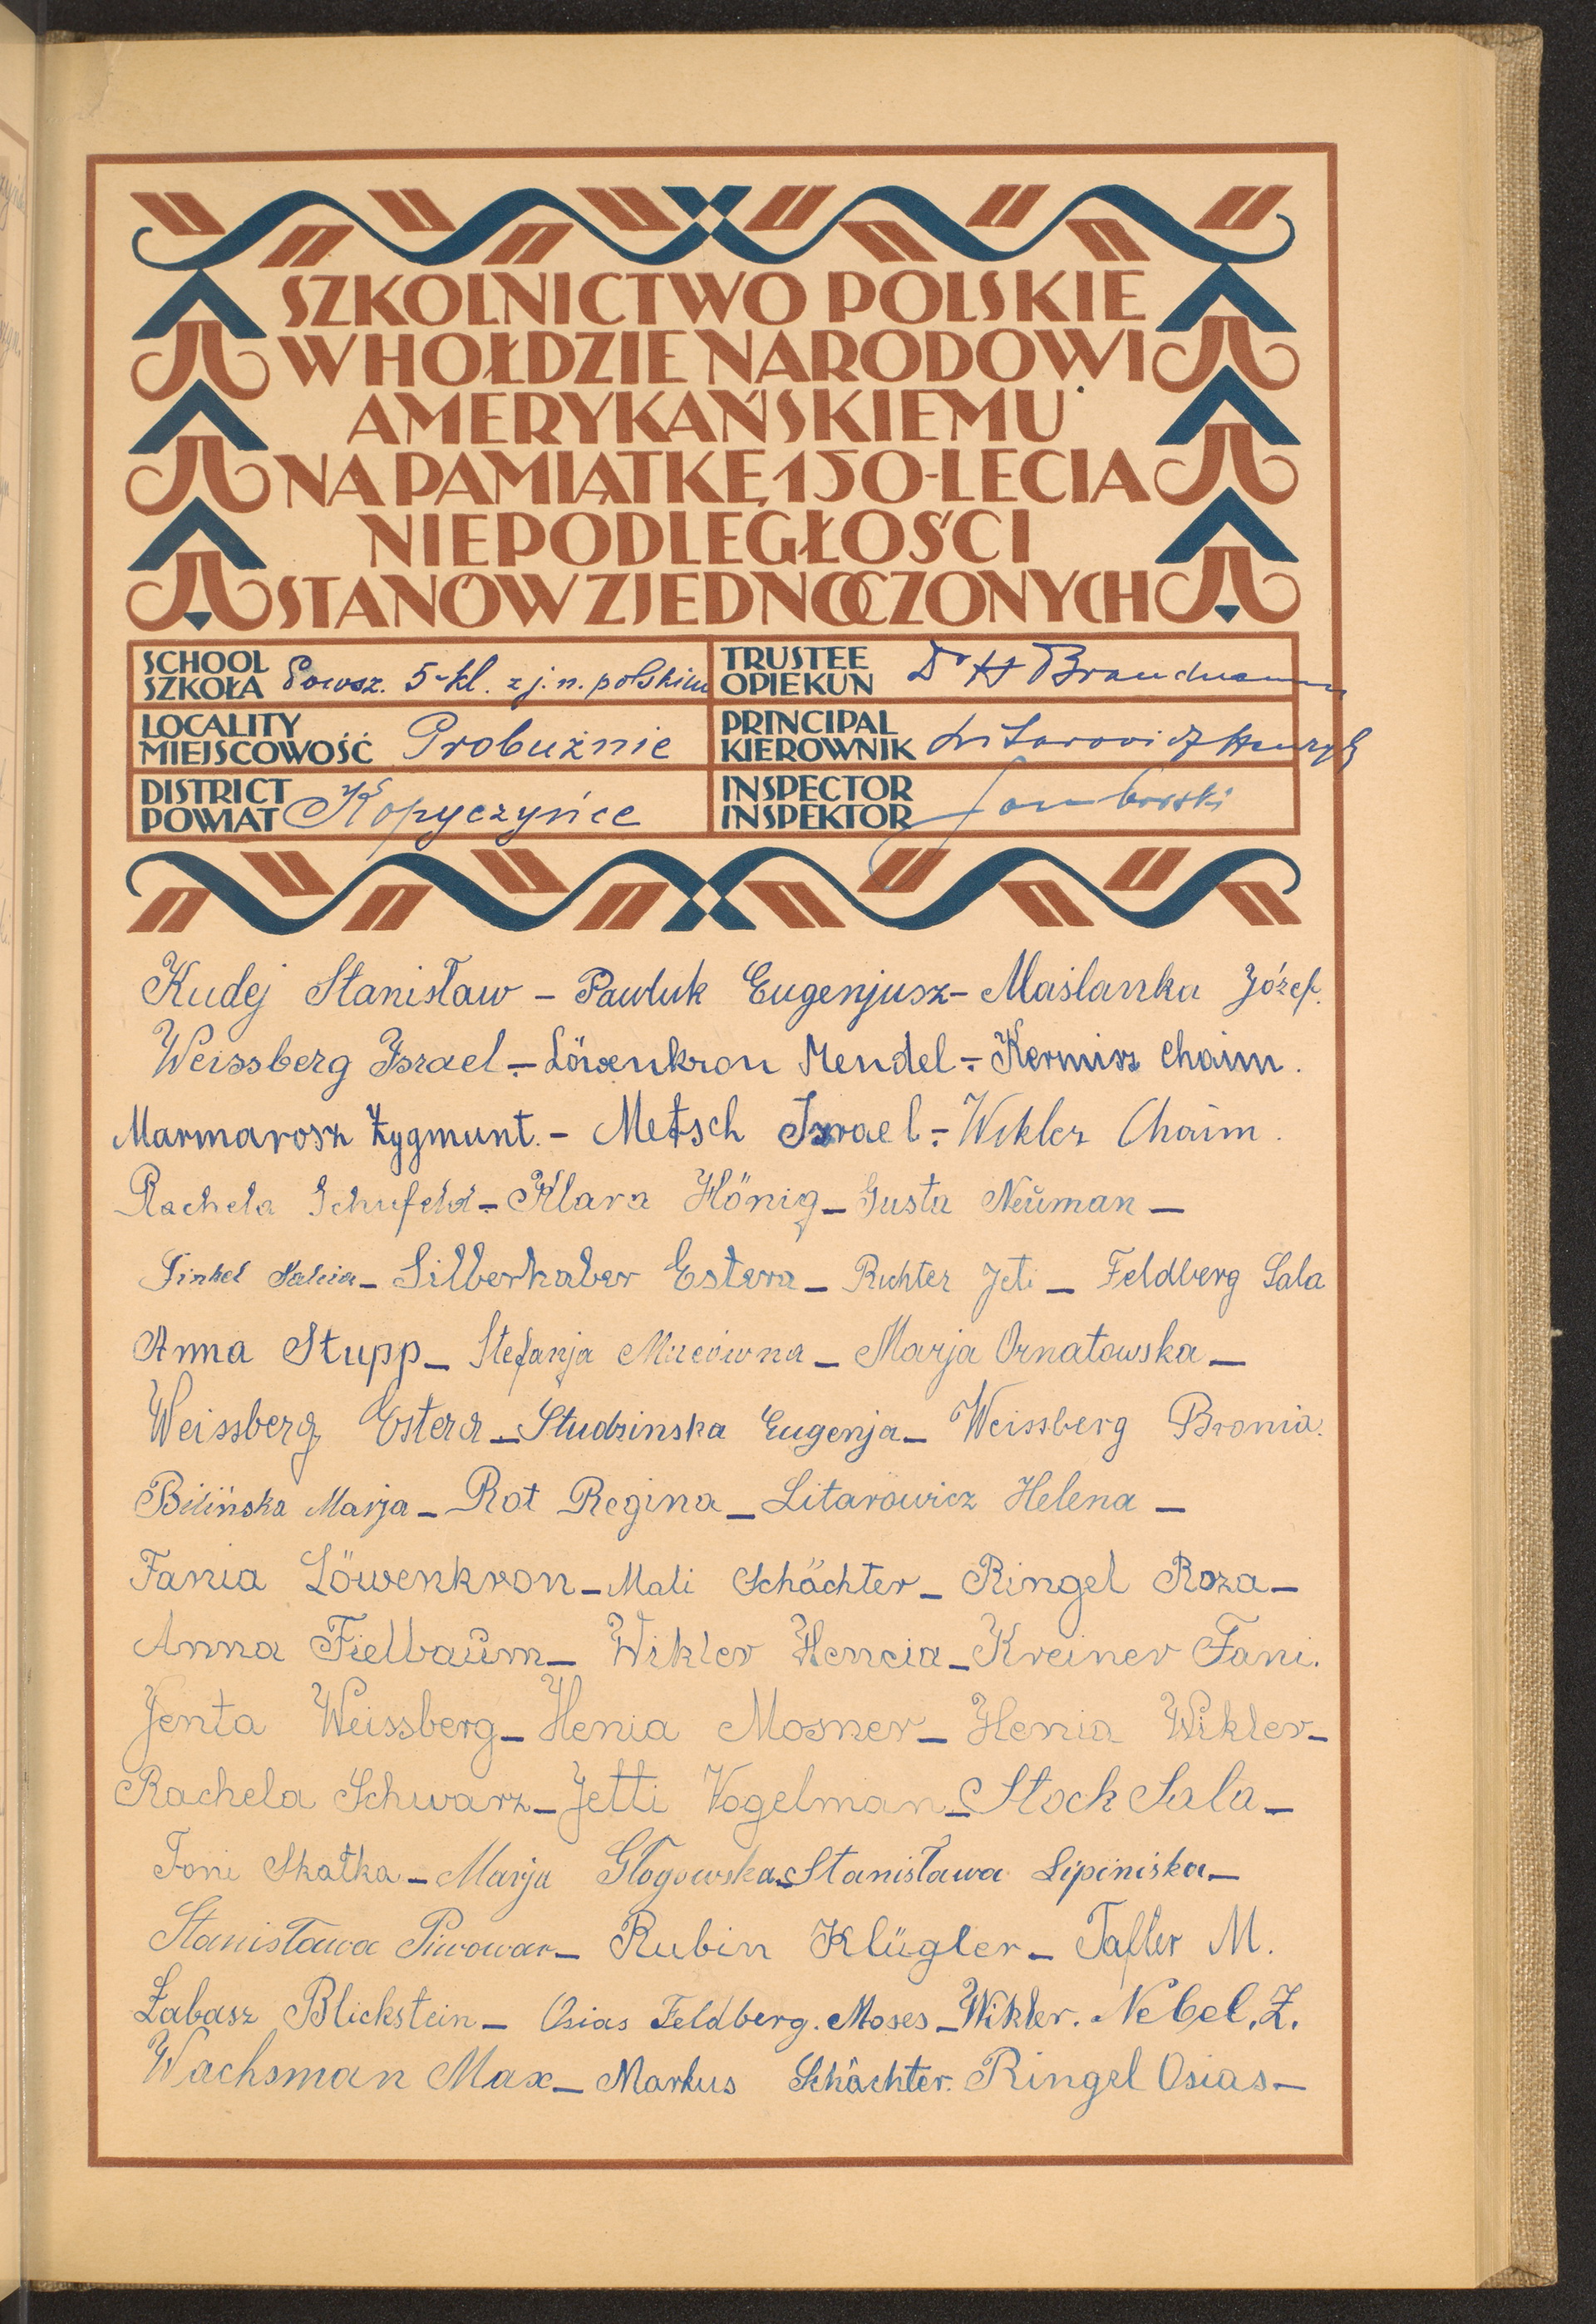 SZKOLNICTWO POLSKIE
W HOŁDZIE NARODOWI
AMERYKAŃSKIEMU
NA PAMIĄTKĘ 150-LECIA
NIEPODLEGŁOŚCI
STANÓW ZJEDNOCZONYCH
SCHOOL SZKOŁA Powsz. 5-kl. z j. n. polskim
TRUSTEE OPIEKUN Dr H
LOCALITY MIEJSCOWOŚĆ Probużnie
PRINCIPAL KIEROWNIK Litarowicz Henryk
DISTRICT POWIAT Kopyczyńce
INSPECTOR INSPEKTOR
Kudej Stanisław - Pawluk Eugenjusz - Maślanka Józef.
Weissberg Israel. - Löwenkron Mendel. - Kermisz Chaim.
Marmarosz Zygmunt. - Metsch Izrael. - Wikler Chaim.
Rachela - Klara Hönig - Gusta Neŭman -
Finkel - Silberhaber Estera - Richter Jeti - Feldberg Sala
Anna Stupp - Stefanja - Marja Ornatowska -
Weissberg Estera - Studzinska Eugenja - Weissberg Bronia.
Bilińska Marja - Rot Regina - Litarowicz Helena -
Fania Löwenkron - Mali Schächter - Ringel Roza -
Anna Fielbaŭm - Wikler Hencia - Kreiner Fani.
Jenta Weissberg - Henia Mosner - Henia Wikler -
Rachela Schwarz - Jetti Vogelman - Stock Sala -
Toni Skałka - Marja Głogowska - Stanisława Lipiniska -
Stanisława Piwowar - Rubin Klügler - Tafler M.
Łabasz Blickstein - Osias Feldberg. Moses - Wikler. Nebel. Z.
Wachsman Max - Markus Schächter. Ringel Osias -